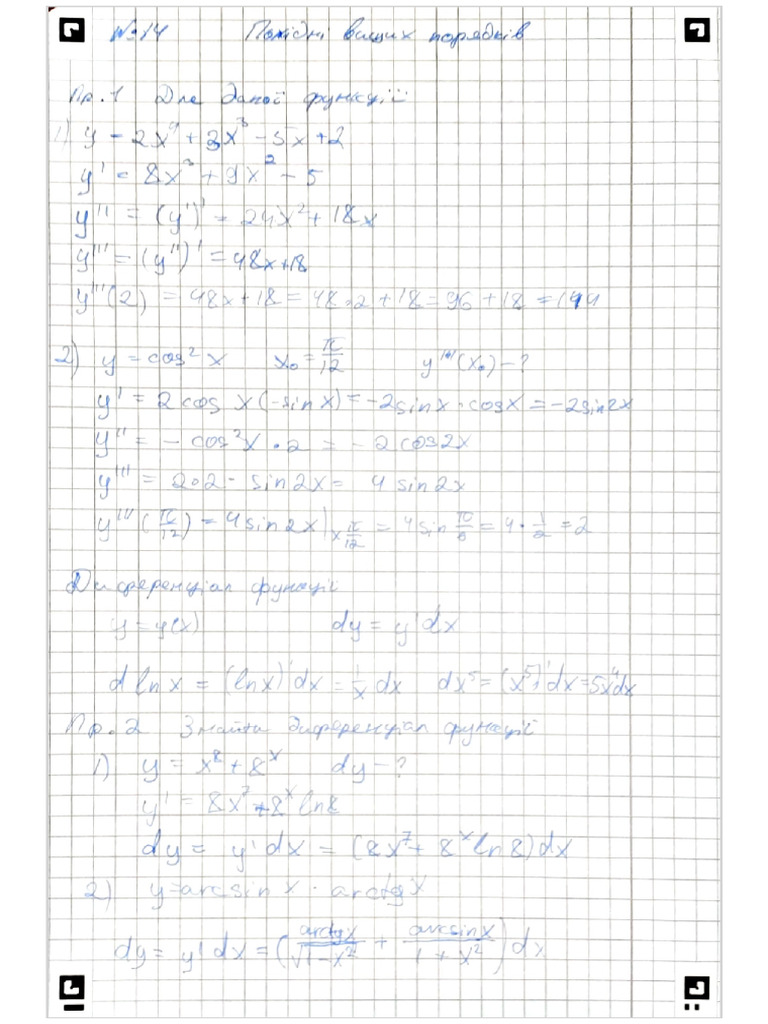 №14 Похідні вищих порядків
Пр.1 Для даної функції
1) y - 2x⁴ + 3x³ - 5x + 2
y' = 8x³ + 9x² - 5
y'' = (y')' = 24x² + 18x
y''' = (y'')' = 48x+18
y'''(2) = 48x+18 = 48·2 + 18 = 96 + 18 = 144
2) y = cos² x x₀ = π/12 y'''(x₀) - ?
y' = 2 cos x (-sin x) = -2 sin x · cos x = -2 sin 2x
y'' = - cos²x · 2 = - 2 cos 2x
y''' = 2·2 · sin 2x = 4 sin 2x
y'''(π/12) = 4 sin 2x |x π/12 = 4 sin π/6 = 4 · 1/2 = 2
Диференціал функції
y = y(x) dy = y' dx
d ln x = (ln x)' dx = 1/x dx dx⁵ = (x⁵)' dx = 5x⁴dx
Пр.2 Знайти диференціал функції
1) y = x⁸ + 8ˣ dy - ?
y' = 8x⁷ + 8ˣ ln 8
dy = y' dx = (8x⁷ + 8ˣ ln 8) dx
2) y = arcsin x · arctg x
dy = y' dx = (arctg x/√1-x² + arcsin x/1 + x²) dx